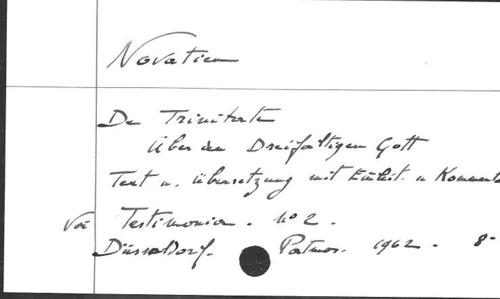 Novatien
De Trinitate
Über den Dreifaltigen Gott
Text u. übersetzung mit Einleit. u Kommenta
Voi Testimonia. no 2.
Düsseldorf. Patmos. 1962. 8-